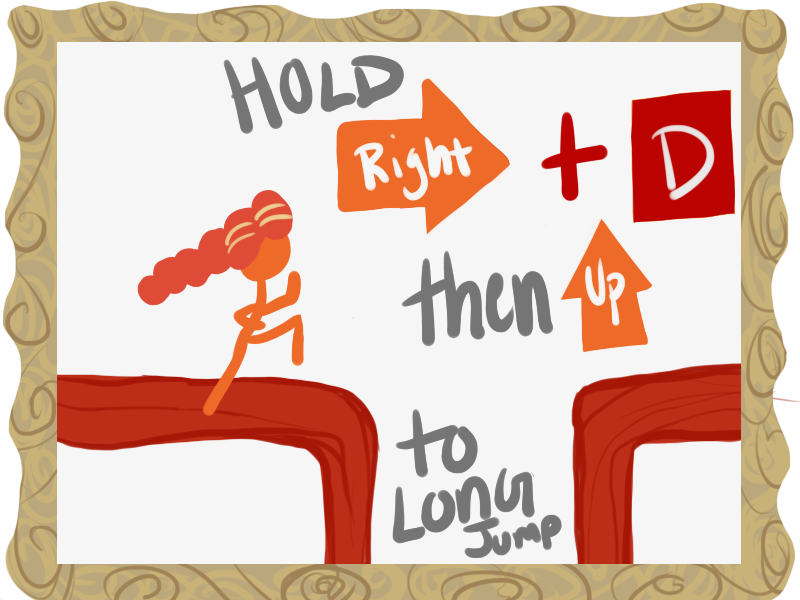 HOLD
Right + D
then Up
to
Long
Jump